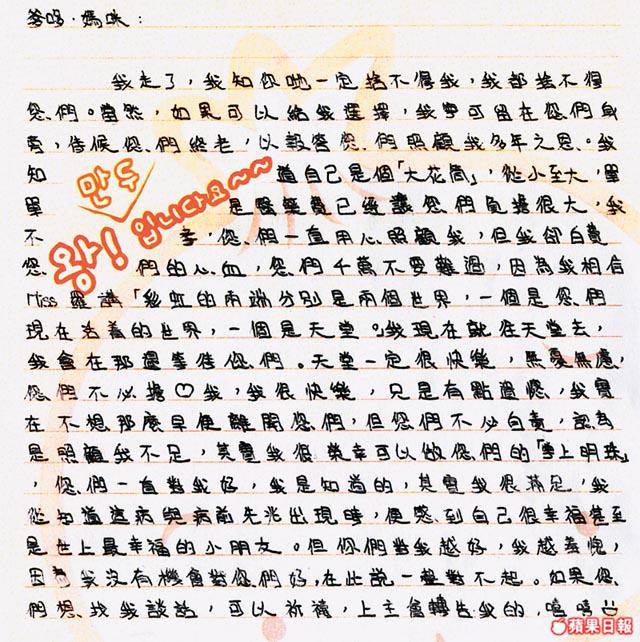 爹哆·媽咪：
我走了，我知你哋一定捨不得我，我都捨不得
您們。當然，如果可以給我選擇，我寧可留在您們身
旁，侍候您們終老，以報答您們照顧我多年之恩。我
知 道自己是個「大花筒」，從小至大，單
單 是醫藥費已經讓您們負擔很大，我
不 孝，您們一直用心照顧我，但我卻白費
您 們的心血，您們千萬不要難過，因為我相信
만두
왕! 입니다요~~
Miss 羅講「彩虹的兩端分別是兩個世界，一個是您們
現在活着的世界，一個是天堂。」我現在就往天堂去，
我會在那邊等待您們。天堂一定很快樂，無憂無慮，
您們不必擔♡我，我很快樂，只是有點遺憾，我實
在不想那麼早便離開您們，但您們不必自責，認為
是照顧我不足，其實我很榮幸可以做您們的「掌上明珠」
，您們一直對我好，我是知道的，其實我很滿足，我
從知道這病與病前先兆出現時，便感到自己很幸福甚至
是世上最幸福的小朋友。但你們對我越好，我越羞愧，
因為我沒有機會對您們好，在此說一聲對不起。如果您
們想找我談話，可以祈禱，上主會轉告我的，嘻嘻
蘋果日報